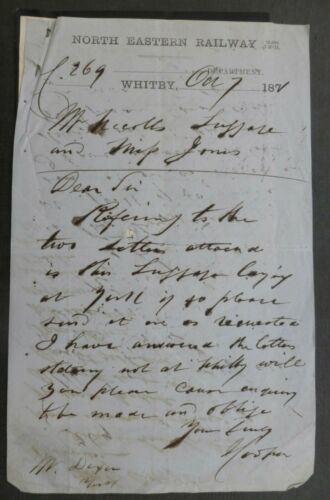 NORTH EASTERN RAILWAY
DEPARTMENT.
C.269
WHITBY, Oct 7 187
Mr Luggage
and Miss Jones
Dear Sir
Refering to the
two letters attached
is this Luggage laying
at York if so please
send it on as requested
I have answered the letters
stating not at Whitby will
you please cause enquiry
to be made and oblige
Your truly
Mr
York